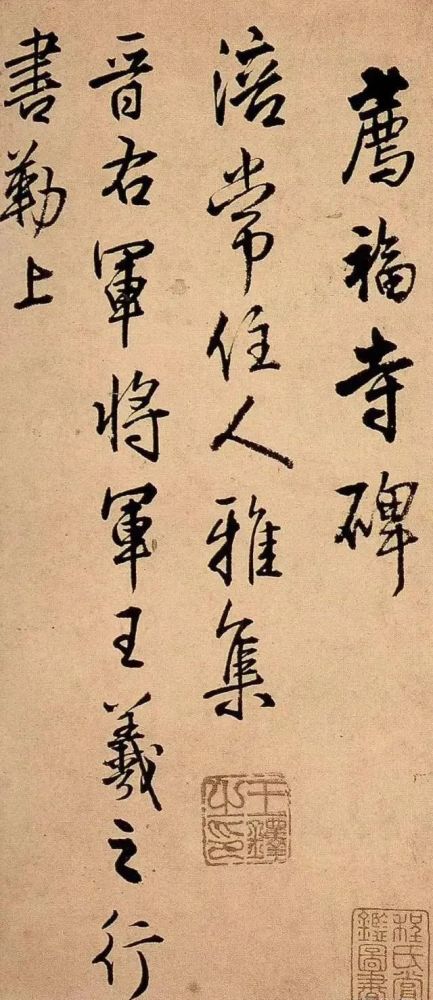 薦福寺碑
涪常住人雅集
晋右軍将軍王羲之行
書勒上
王鐸之印
程氏賞鑑圖書